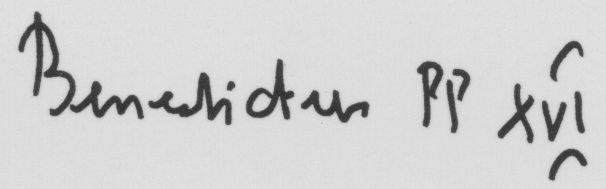 Benedictus PP XVI